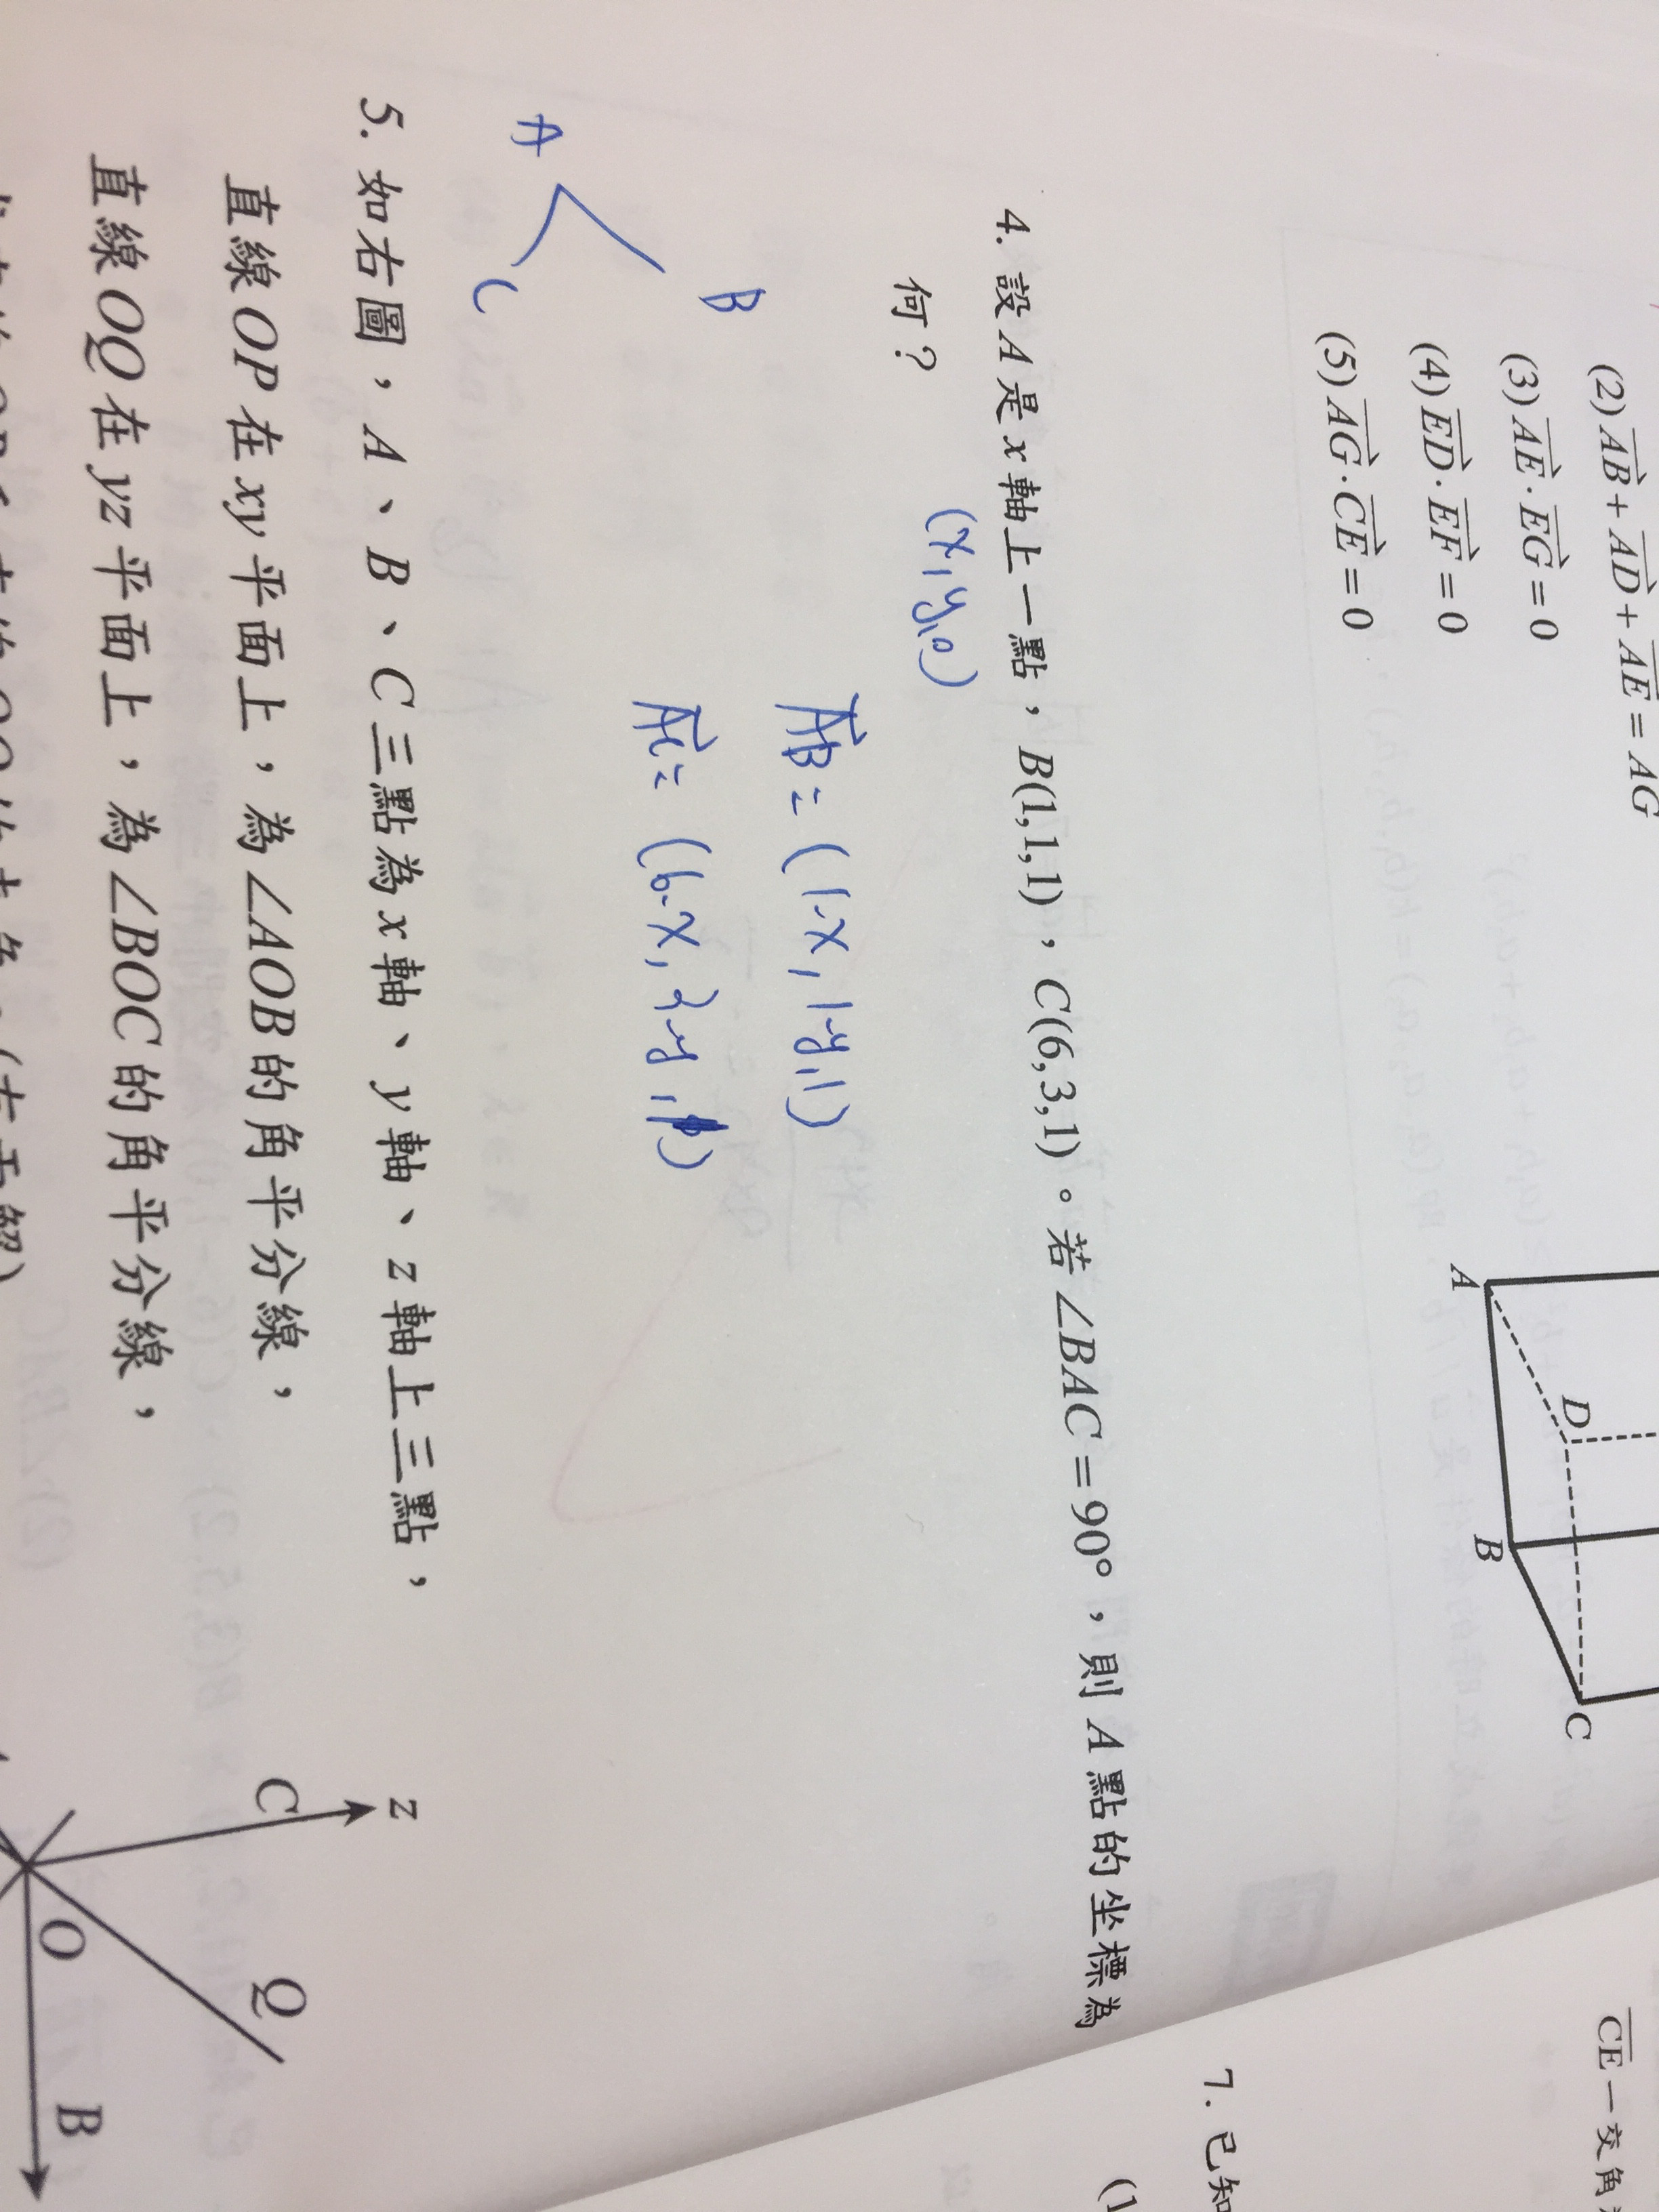 (2) AB + AD + AE = AG
(3) AE · EG = 0
(4) ED · EF = 0
(5) AG · CE = 0
A
D
B
C
4. 設 A 是 x 軸上一點，B(1,1,1)，C(6,3,1)。若 ∠BAC = 90°，則 A 點的坐標為
何？
(x, y, o)
AB = (1-x, 1-y, 1)
AC = (6-x, 3-y, 1)
A
B
C
5. 如右圖，A、B、C 三點為 x 軸、y 軸、z 軸上三點，
直線 OP 在 xy 平面上，為 ∠AOB 的角平分線，
直線 OQ 在 yz 平面上，為 ∠BOC 的角平分線，
z
C
O
Q
B
CE 一交角
7. 已知
(1